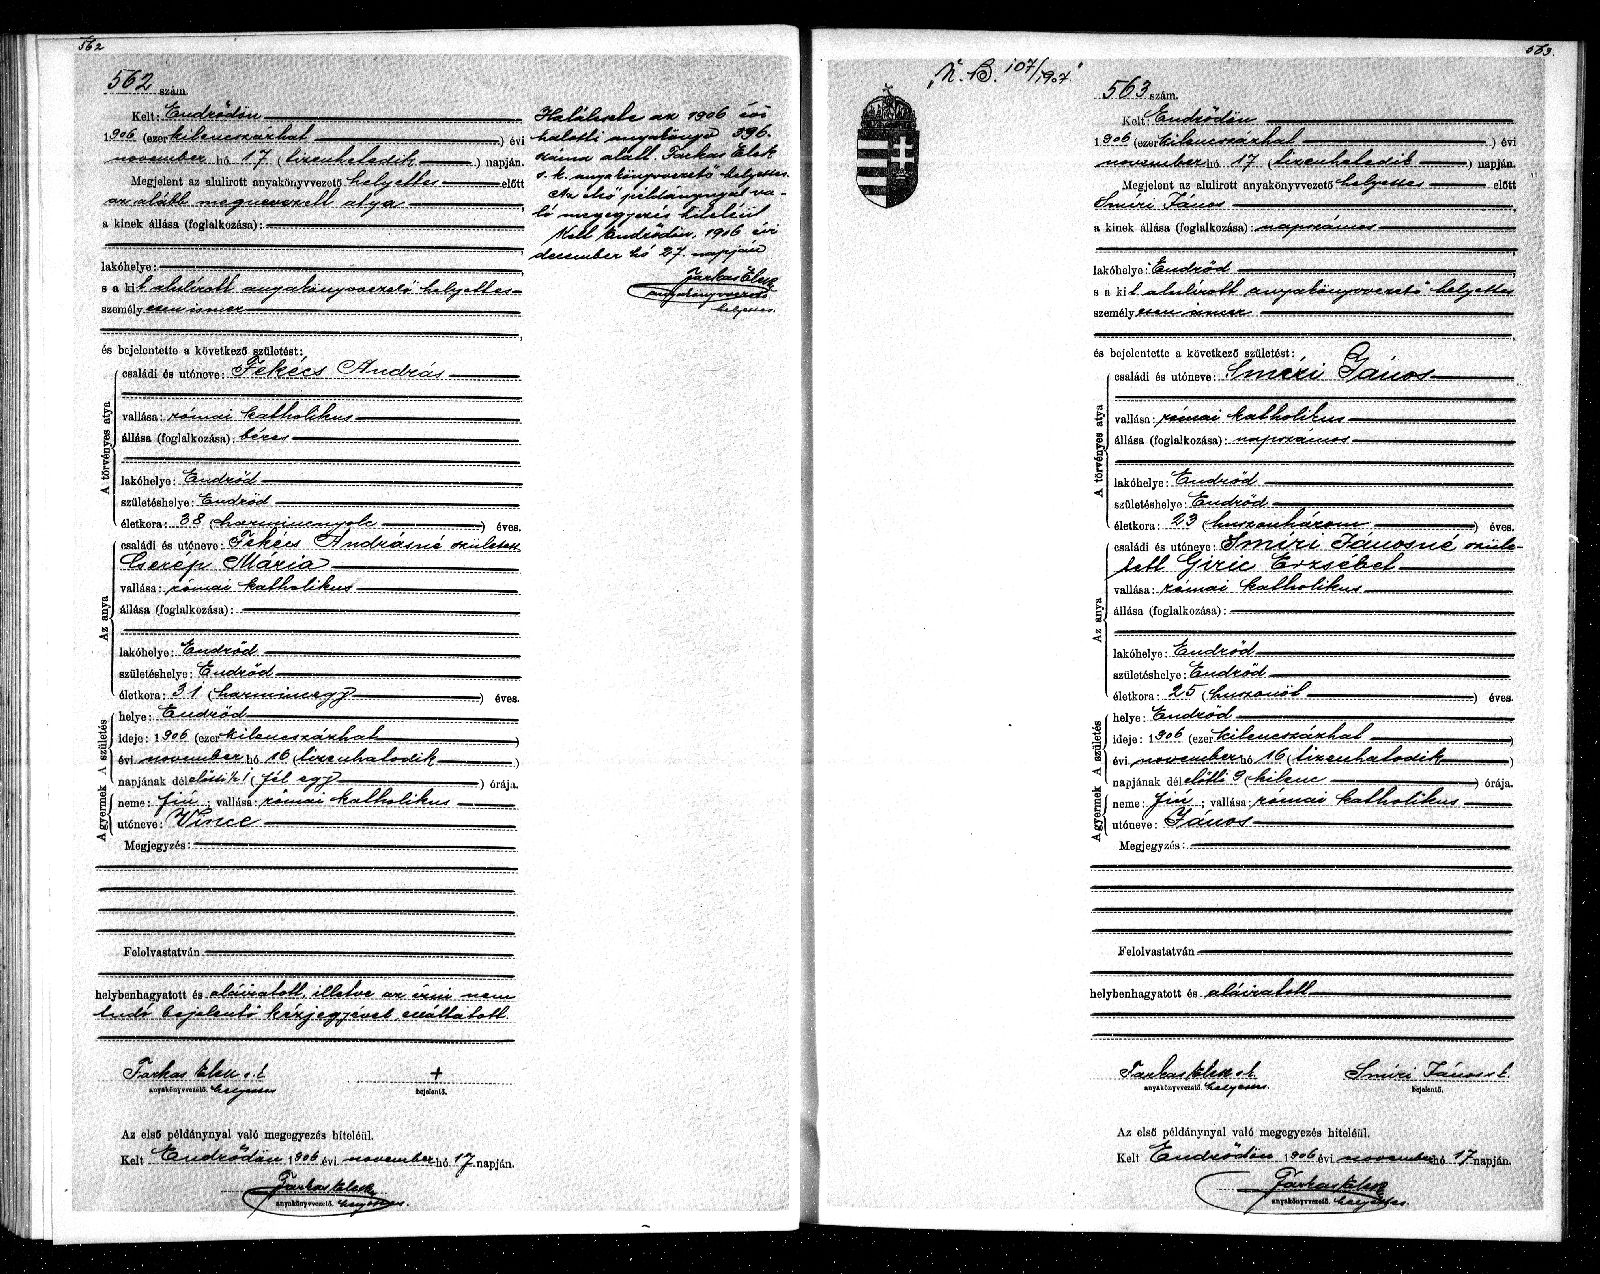 562
562 szám.
Kelt: Endrődön
1906 (ezer kilencszázhat) évi
november hó 17 (tizenhetedik) napján.
Megjelent az alulirott anyakönyvvezető helyettes előtt
az alább megnevezett atya,
a kinek állása (foglalkozása):
lakóhelye:
s a kit alulirott anyakönyvvezető helyettes
személyesen ismer,
és bejelentette a következő születést:
A törvényes atya
családi és utóneve: Fekécs András
vallása: római katholikus
állása (foglalkozása): béres
lakóhelye: Endrőd
születéshelye: Endrőd
életkora: 38 (harmincnyolc) éves.
Az anya
családi és utóneve: Fekécs Andrásné született
Cserép Mária
vallása: római katholikus
állása (foglalkozása):
lakóhelye: Endrőd
születéshelye: Endrőd
életkora: 31 (harmincegy) éves.
A születés
helye: Endrőd
ideje: 1906 (ezer kilencszázhat)
évi november hó 16 (tizenhatodik)
napjának délelőtti ½1 (fél egy) órája.
A gyermek
neme: fiú; vallása: római katholikus
utóneve: Vince
Megjegyzés:
Felolvastatván
helybenhagyatott és aláiratott, illetve az írni nem
tudó bejelentő kézjegyével elláttatott.
Farkas Elek s. k. +
anyakönyvvezető helyettes bejelentő.
Az első példánynyal való megegyezés hiteléül.
Kelt Endrődön 1906 évi november hó 17 napján.
Farkas Elek
anyakönyvvezető helyettes.
Halálesete az 1906 évi
halotti anyakönyv 396.
száma alatt. Farkas Elek
s. k. anyakönyvvezető helyettes.
Az első példánynyal va-
ló megegyezés hiteléül
Kelt Endrődön, 1906 évi
december hó 27. napján
Farkas Elek
anyakönyvvezető
helyettes.
563.
N. B. 107/1907
563 szám.
Kelt: Endrődön
1906 (ezer kilencszázhat) évi
november hó 17 (tizenhetedik) napján.
Megjelent az alulirott anyakönyvvezető helyettes előtt
Smíri János
a kinek állása (foglalkozása): napszámos
lakóhelye: Endrőd
s a kit alulirott anyakönyvvezető helyettes
személyesen ismer,
és bejelentette a következő születést:
A törvényes atya
családi és utóneve: Smíri János
vallása: római katholikus
állása (foglalkozása): napszámos
lakóhelye: Endrőd
születéshelye: Endrőd
életkora: 23 (huszonhárom) éves.
Az anya
családi és utóneve: Smíri Jánosné szüle-
tett Giric Erzsébet
vallása: római katholikus
állása (foglalkozása):
lakóhelye: Endrőd
születéshelye: Endrőd
életkora: 25 (huszonöt) éves.
A születés
helye: Endrőd
ideje: 1906 (ezer kilencszázhat)
évi november hó 16 (tizenhatodik)
napjának délelőtti 9 (kilenc) órája.
A gyermek
neme: fiú; vallása: római katholikus
utóneve: János
Megjegyzés:
Felolvastatván
helybenhagyatott és aláiratott
Farkas Elek s. k. Smíri János s. k.
anyakönyvvezető helyettes. bejelentő.
Az első példánynyal való megegyezés hiteléül.
Kelt Endrődön 1906 évi november hó 17 napján.
Farkas Elek
anyakönyvvezető helyettes.